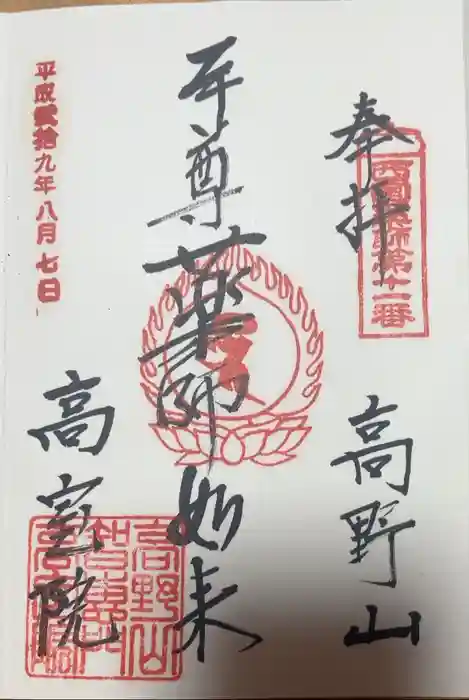 奉拝
西國薬師第十一番
高野山
尊薬師如来
平成貳拾九年八月七日
高室院
高野山